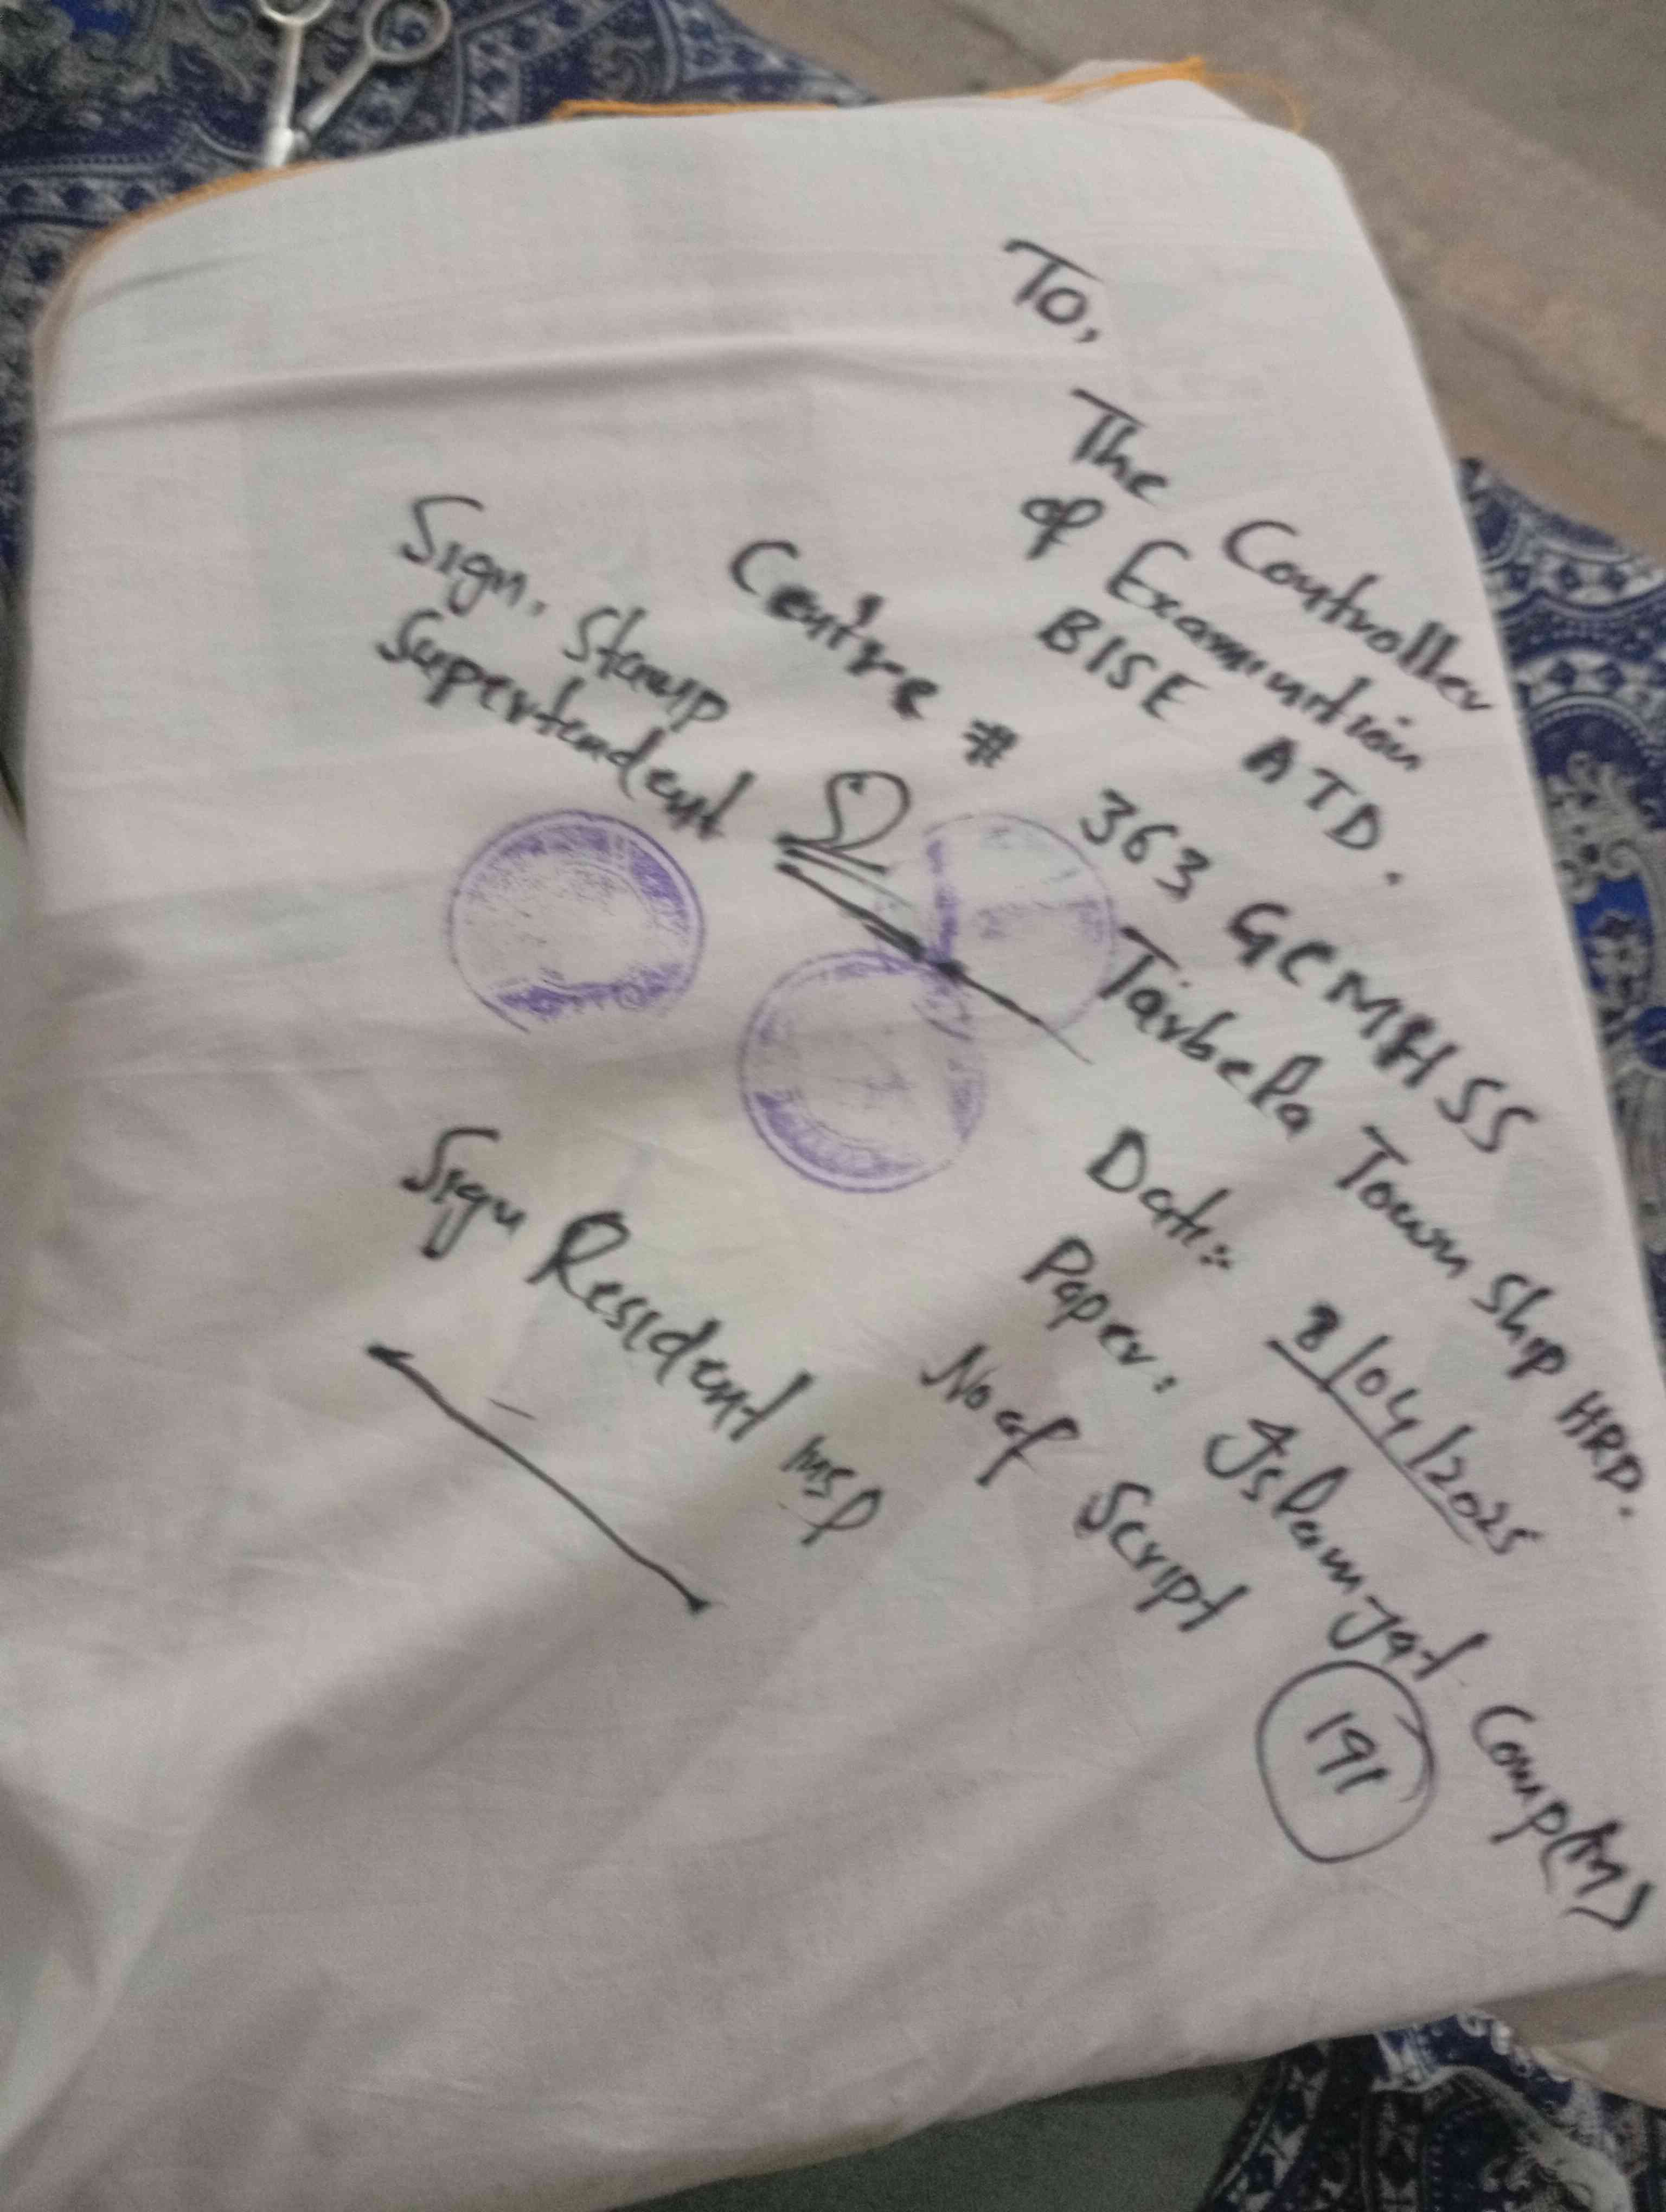 To,
The Controller
of Examination
BISE ATD.
Centre # 363 GCMHSS
Tarbela Town Ship HRP.
Date: 8/04/2025
Paper: Islamyat Comp(M)
No of Script 191
Sign. Stamp
Supertendent
Sign Resident Insp